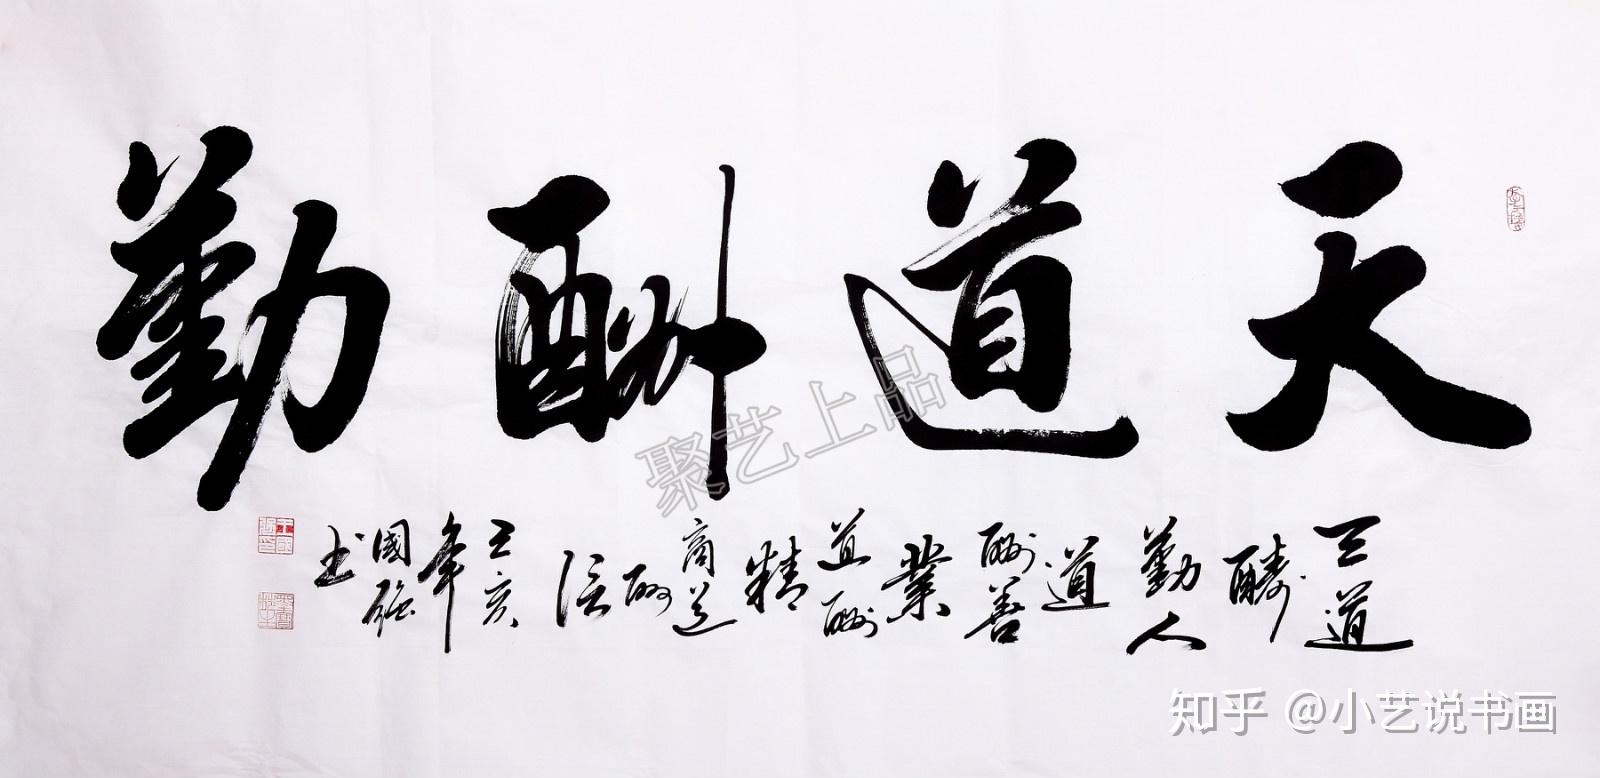 天道酬勤
天道
酬
勤人
道
酬善
業
道酬
精
商道
酬
信
己亥
年
國強
书
聚艺上品
知乎 @小艺说书画